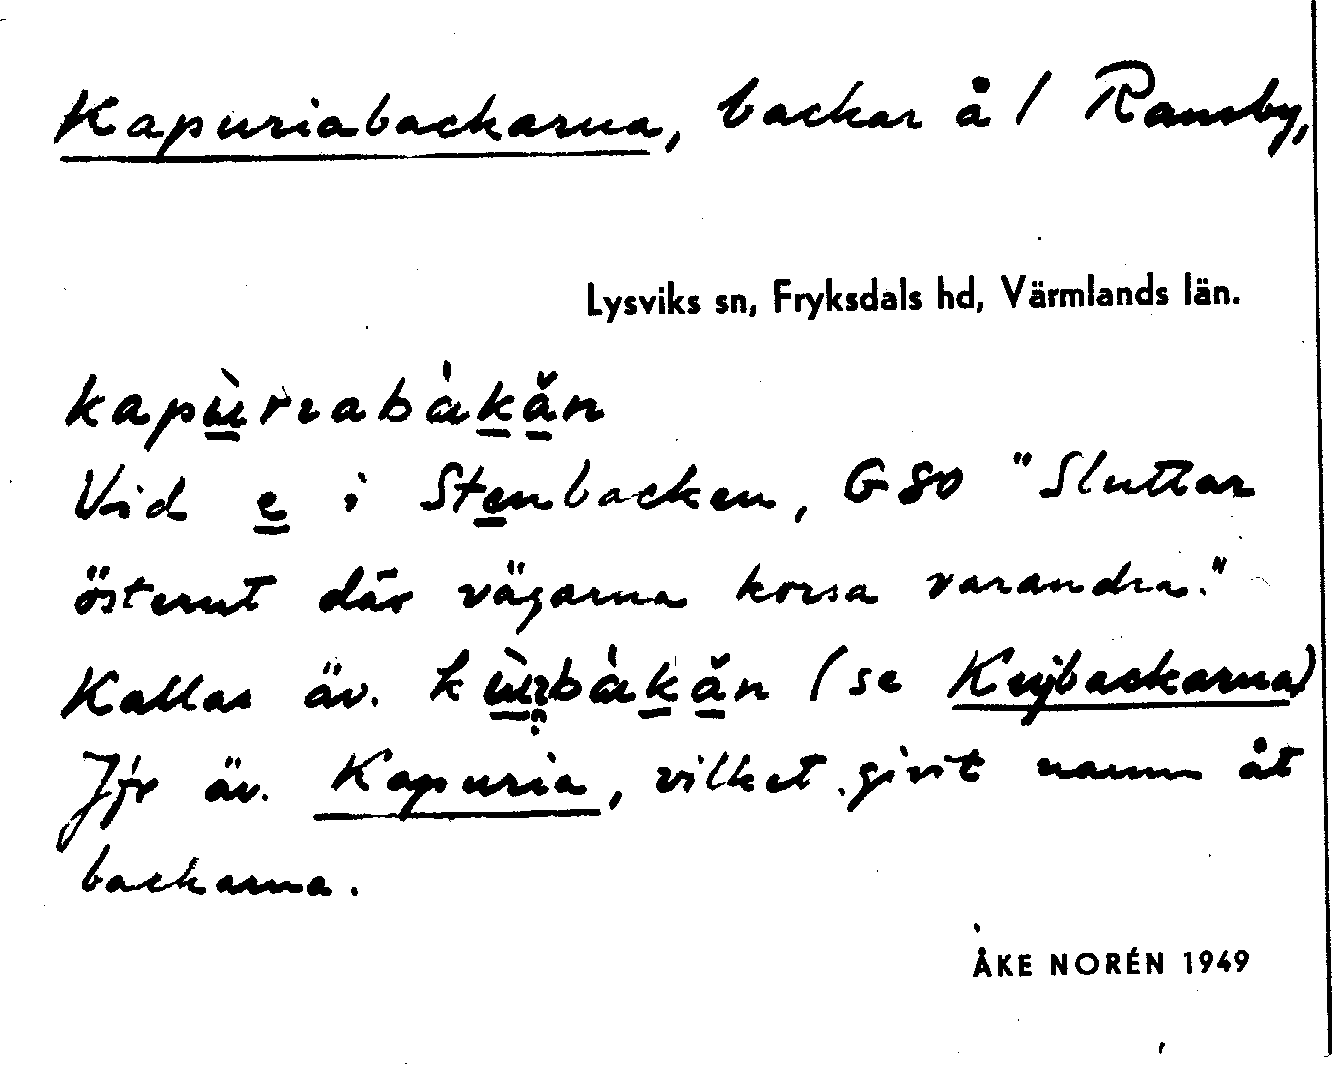 Kapuriabackarna, backar å / Ransby,
Lysviks sn, Fryksdals hd, Värmlands län.
kapù̱rɩabàḵä̱n
Vid e̱ i Ste̱nbacken, G80 "Sluttar
österut där vägarna korsa varandra."
Kallas äv. (se Kujbackarna)
Jfr äv. Kapuria, vilket givit namn åt
backarna.
ÅKE NORÉN 1949